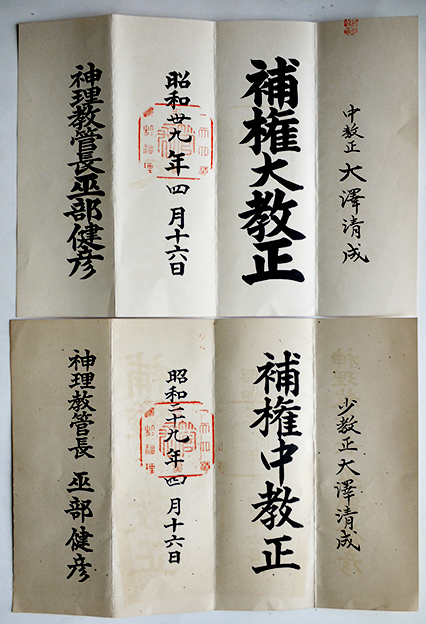 中教正 大澤清成
補権大教正
昭和卅九年四月十六日
神理教管長巫部健彦
少教正大澤清成
補権中教正
昭和二十九年四月十六日
神理教管長 巫部健彦